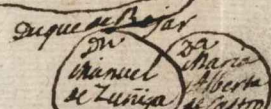 Duque de Bejar
Dn
Manuel
de Zuñiga
Da
Maria
Alberta
de Castro